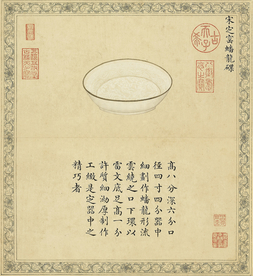 宋定窰蟠龍碟
高八分深六分口
徑四寸四分器中
細劃作蟠龍形流
雲繞之口下環以
雷文底足高一分
許質細泑厚制作
工緻是定器中之
精巧者
古希天子